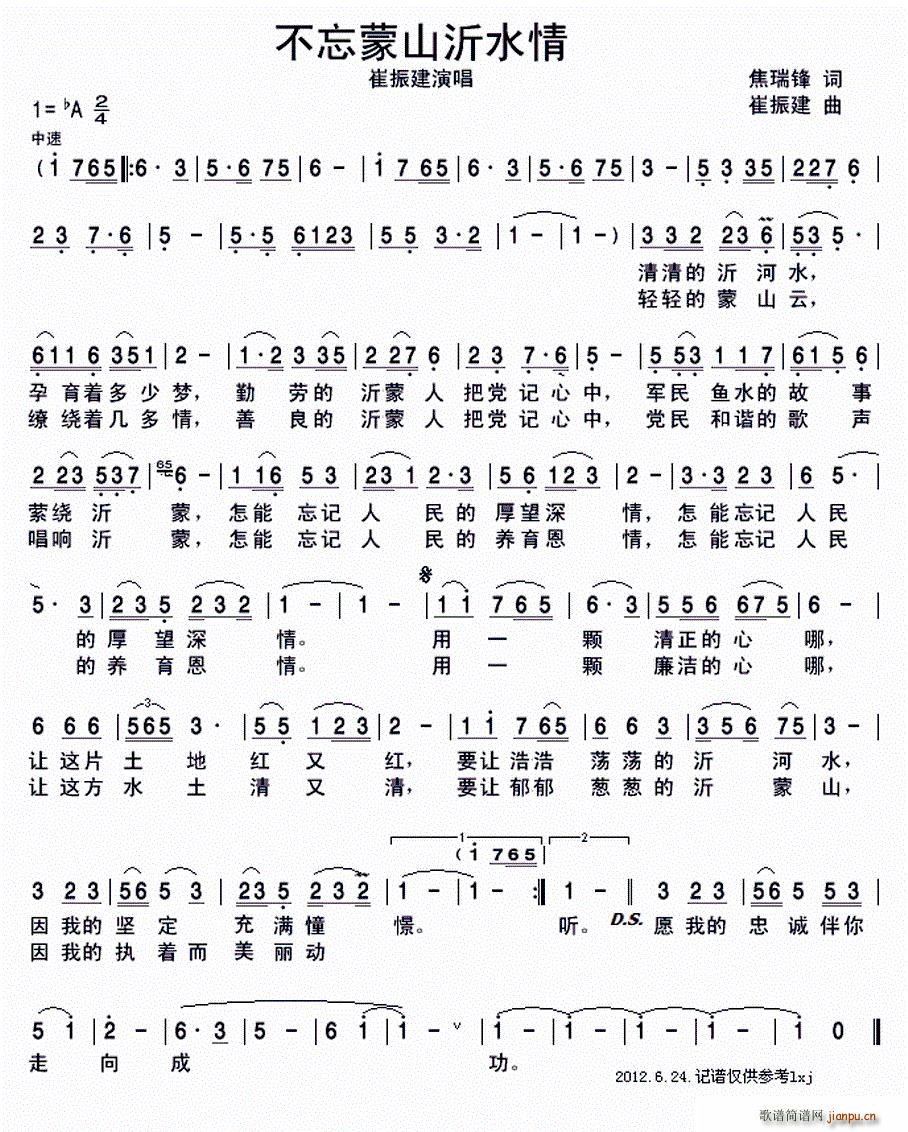 不忘蒙山沂水情
崔振建演唱
焦瑞锋 词
1=♭A 2/4
崔振建 曲
中速
(i 765‖:6· 3|5·6 75|6 -|i 7 65|6· 3|5·6 75|3 -|5 3 35|227 6|
2 3 7·6|5 -|5·5 6123|55 3·2|1 -|1 -)|332 236|53 5·|
清清的沂河水,
轻轻的蒙山云,
6116 351|2 -|1·2 3 35|2 27 6|2 3 7·6|5 -|5 53 1 1 7|615 6|
孕育着多少梦, 勤劳的沂蒙人把党记心中, 军民鱼水的故事
缭绕着几多情, 善良的沂蒙人把党记心中, 党民和谐的歌声
2 23 537|65 6 -|1 16 5 3|23 1 2·3|5 6 123|2 -|3·3 2 3|6 5·|
萦绕沂蒙, 怎能忘记人民的厚望深情, 怎能忘记人民
唱响沂蒙, 怎能忘记人民的养育恩情, 怎能忘记人民
5· 3|235 232|1 -|1 -|1i 765|6·3|556 675|6 -|
的厚望深情。 用一颗清正的心哪,
的养育恩情。 用一颗廉洁的心哪,
6 66|3 565 3·|55 123|2 -|1i 7 65|6 63|356 75|3 -|
让这片土地红又红, 要让浩浩荡荡的沂河水,
让这方水土清又清, 要让郁郁葱葱的沂蒙山,
1 2
(i 765|
3 23|56 5 3|235 232|1 -|1 - :‖1 -‖3 23|56 5 53|
因我的坚定充满憧憬。 听。 D.S. 愿我的忠诚伴你
因我的执着而美丽动
5 i|2 -|6·3|5 -|6 i|i - ∨|i -|i -|i -|i -|i 0‖
走向成功。
2012.6.24.记谱仅供参考lxj
歌谱简谱网 jianpu.cn